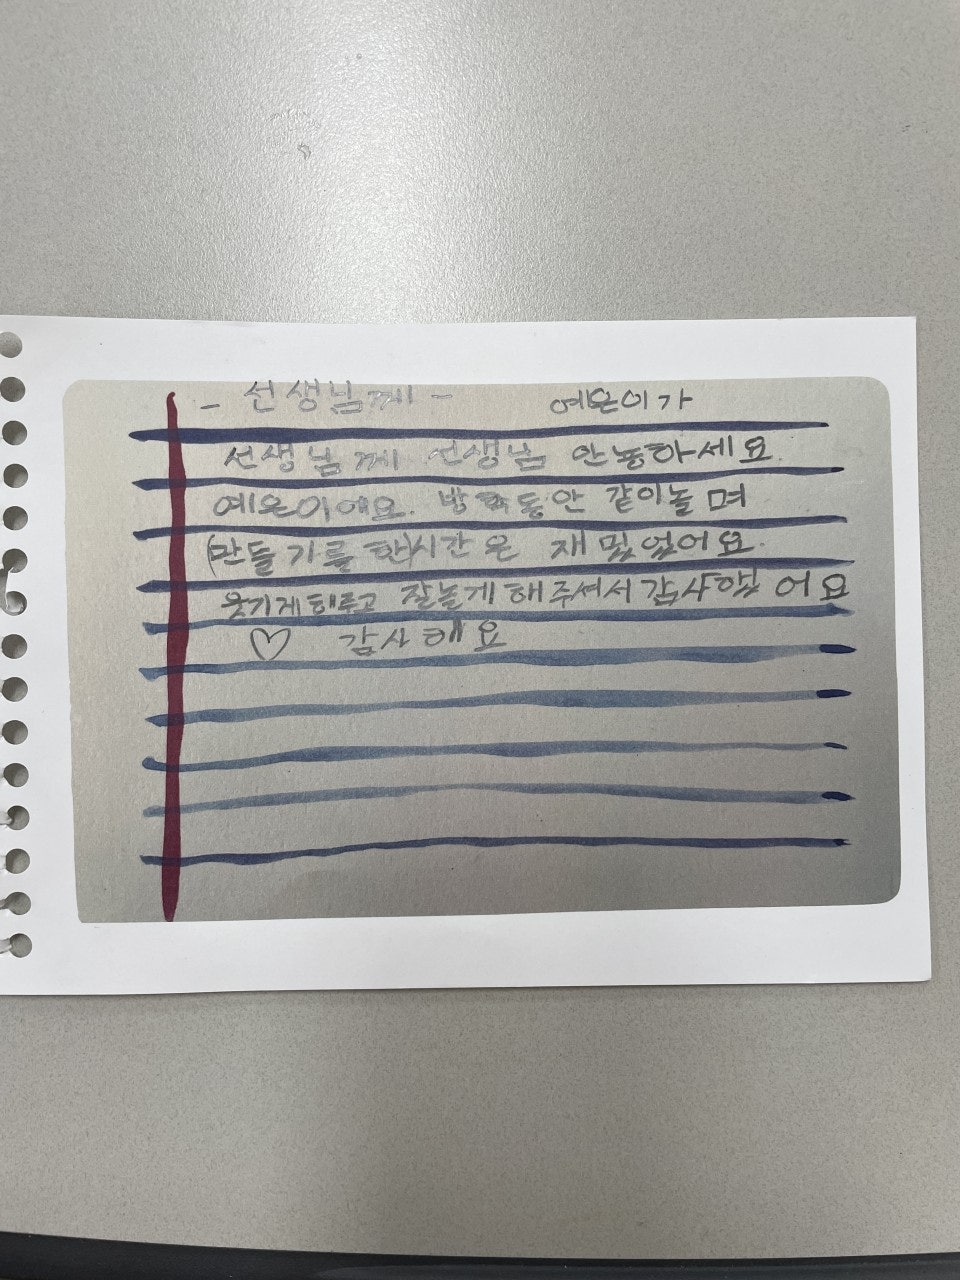 - 선생님께 - 예온이가
선생님께 선생님 안농하세요.
예온이에요. 방학동안 같이놀며
(만들기를 한)시간은 재밌었어요.
웃기게해주고 잘놀게해주셔서감사했어요
♡ 감사해요